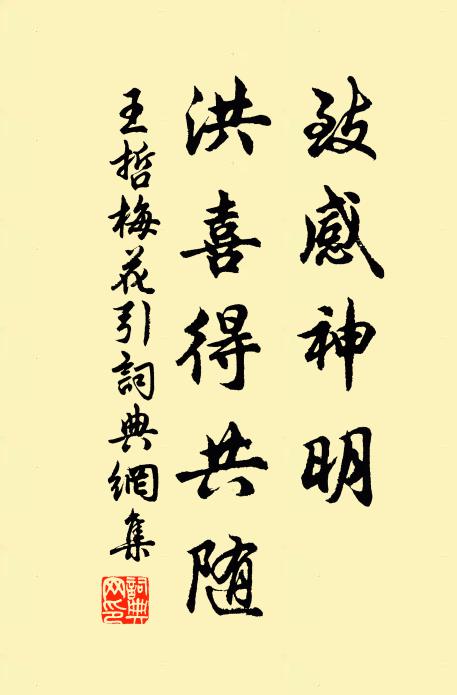 致感神明
洪喜得共随
王哲梅花引詞典網集
詞典网印